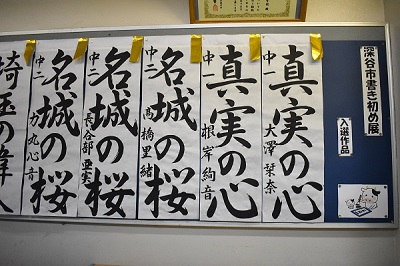 深谷市書き初め展
入選作品
真実の心
中一 大澤栞奈
真実の心
中一 根岸絢音
名城の桜
中二 高橋里緒
名城の桜
中二 長谷部亜実
名城の桜
中二 力丸心音
埼玉の偉人